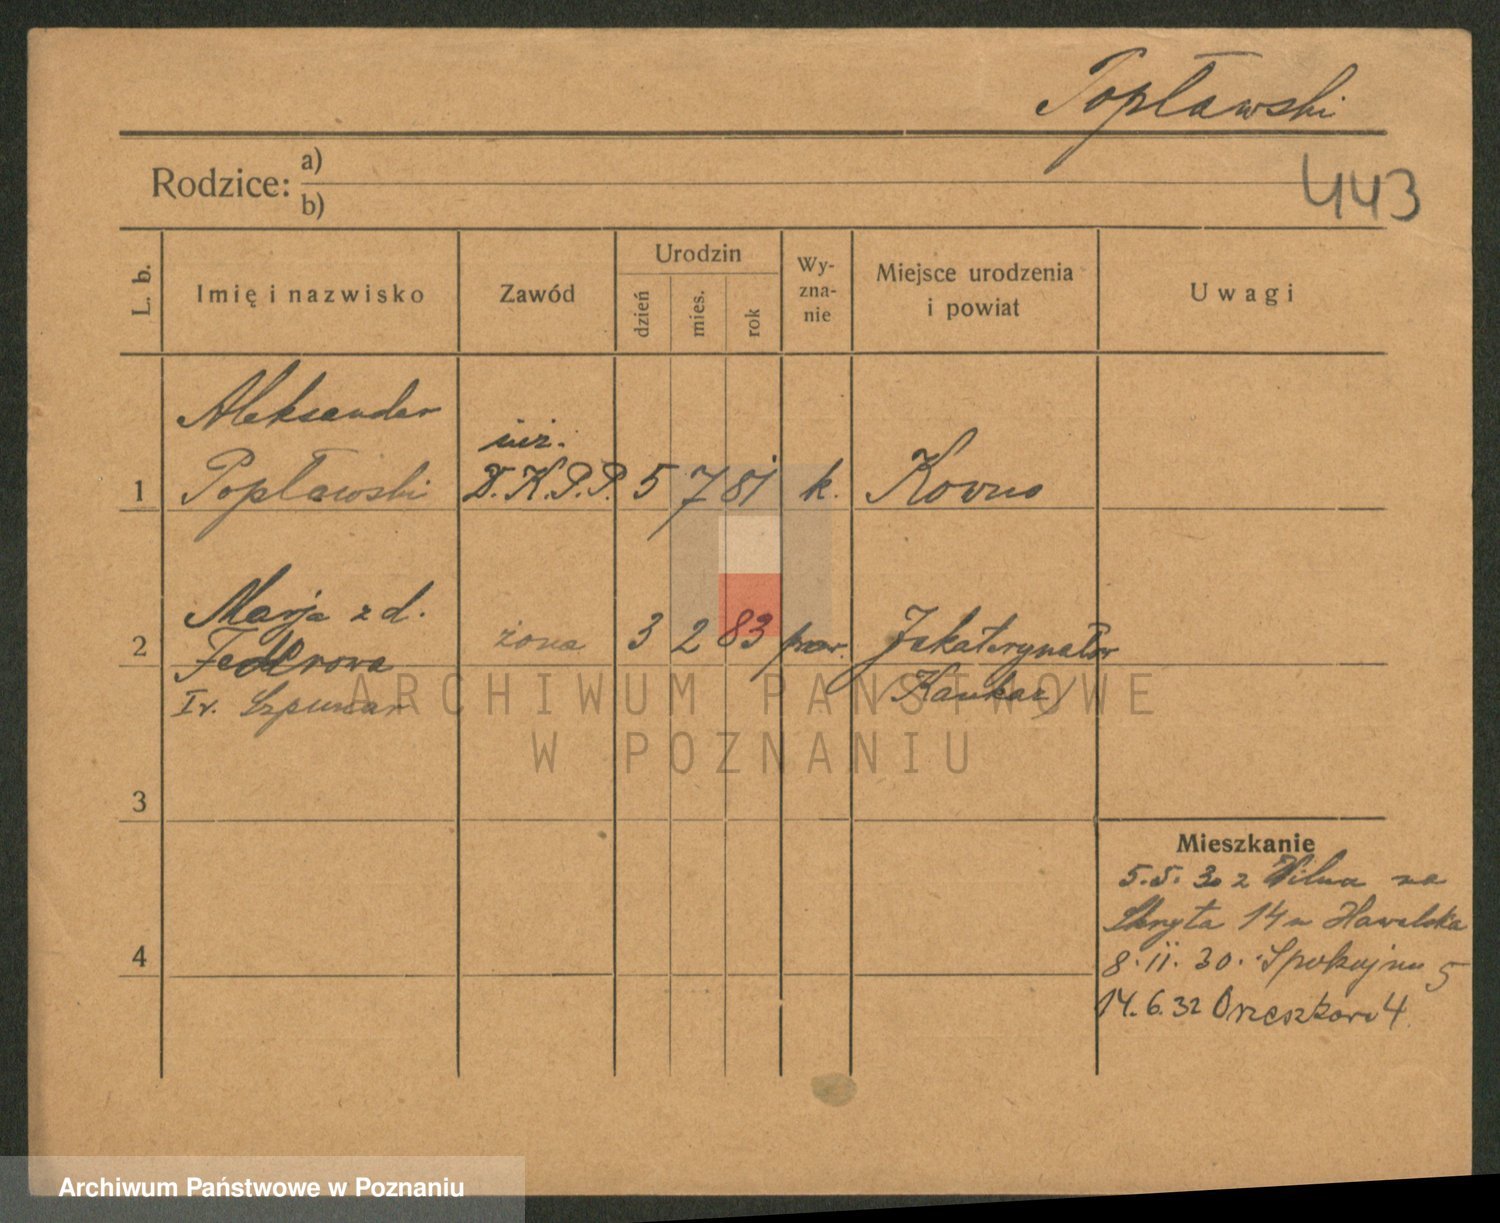 Popławski
443
Rodzice: a)
b)
L. b.
Imię i nazwisko
Zawód
Urodzin
dzień
mies.
rok
Wy-
zna-
nie
Miejsce urodzenia
i powiat
Uwagi
Aleksander
inż.
1 Popławski D.K.P.P. 5 7 81 k. Kovno
Marja z d.
2 Fedorowa żona 3 2 83 praw. Jekaterynator
I v. Szpunar Kaukaz
ARCHIWUM PAŃSTWOWE
W POZNANIU
3
Mieszkanie
5.5.30 z Wilna na
Skryta 14 Hawelska
4
8.11.30. Spokojna 5
14.6.32 Orzeszkow 4
Archiwum Państwowe w Poznaniu